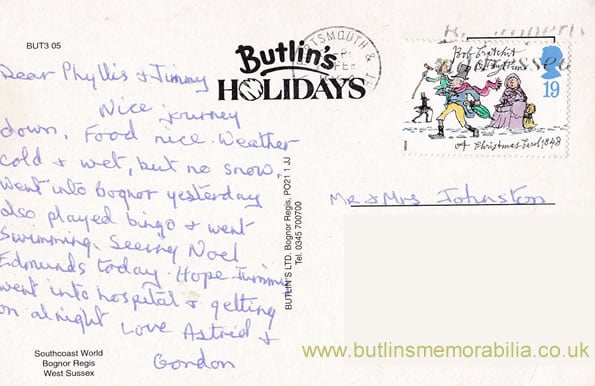 BUT3 05
Butlin's
HOLIDAYS
Dear Phyllis & Jimmy
Nice journey
down. Food nice. Weather
cold & wet, but no snow.
went into Bognor yesterday
also played bingo & went
swimming. Seeing Noel
Edmunds today. Hope Jimmy
went into hospital & getting
on alright Love Astrid &
Gordon
Southcoast World
Bognor Regis
West Sussex
BUTLIN'S LTD. Bognor Regis, PO21 1 JJ
Tel. 0345 700700
PORTSMOUTH &
Bob Cratchit
19
A Christmas Carol 1843
Mr & Mrs Johnston
www.butlinsmemorabilia.co.uk